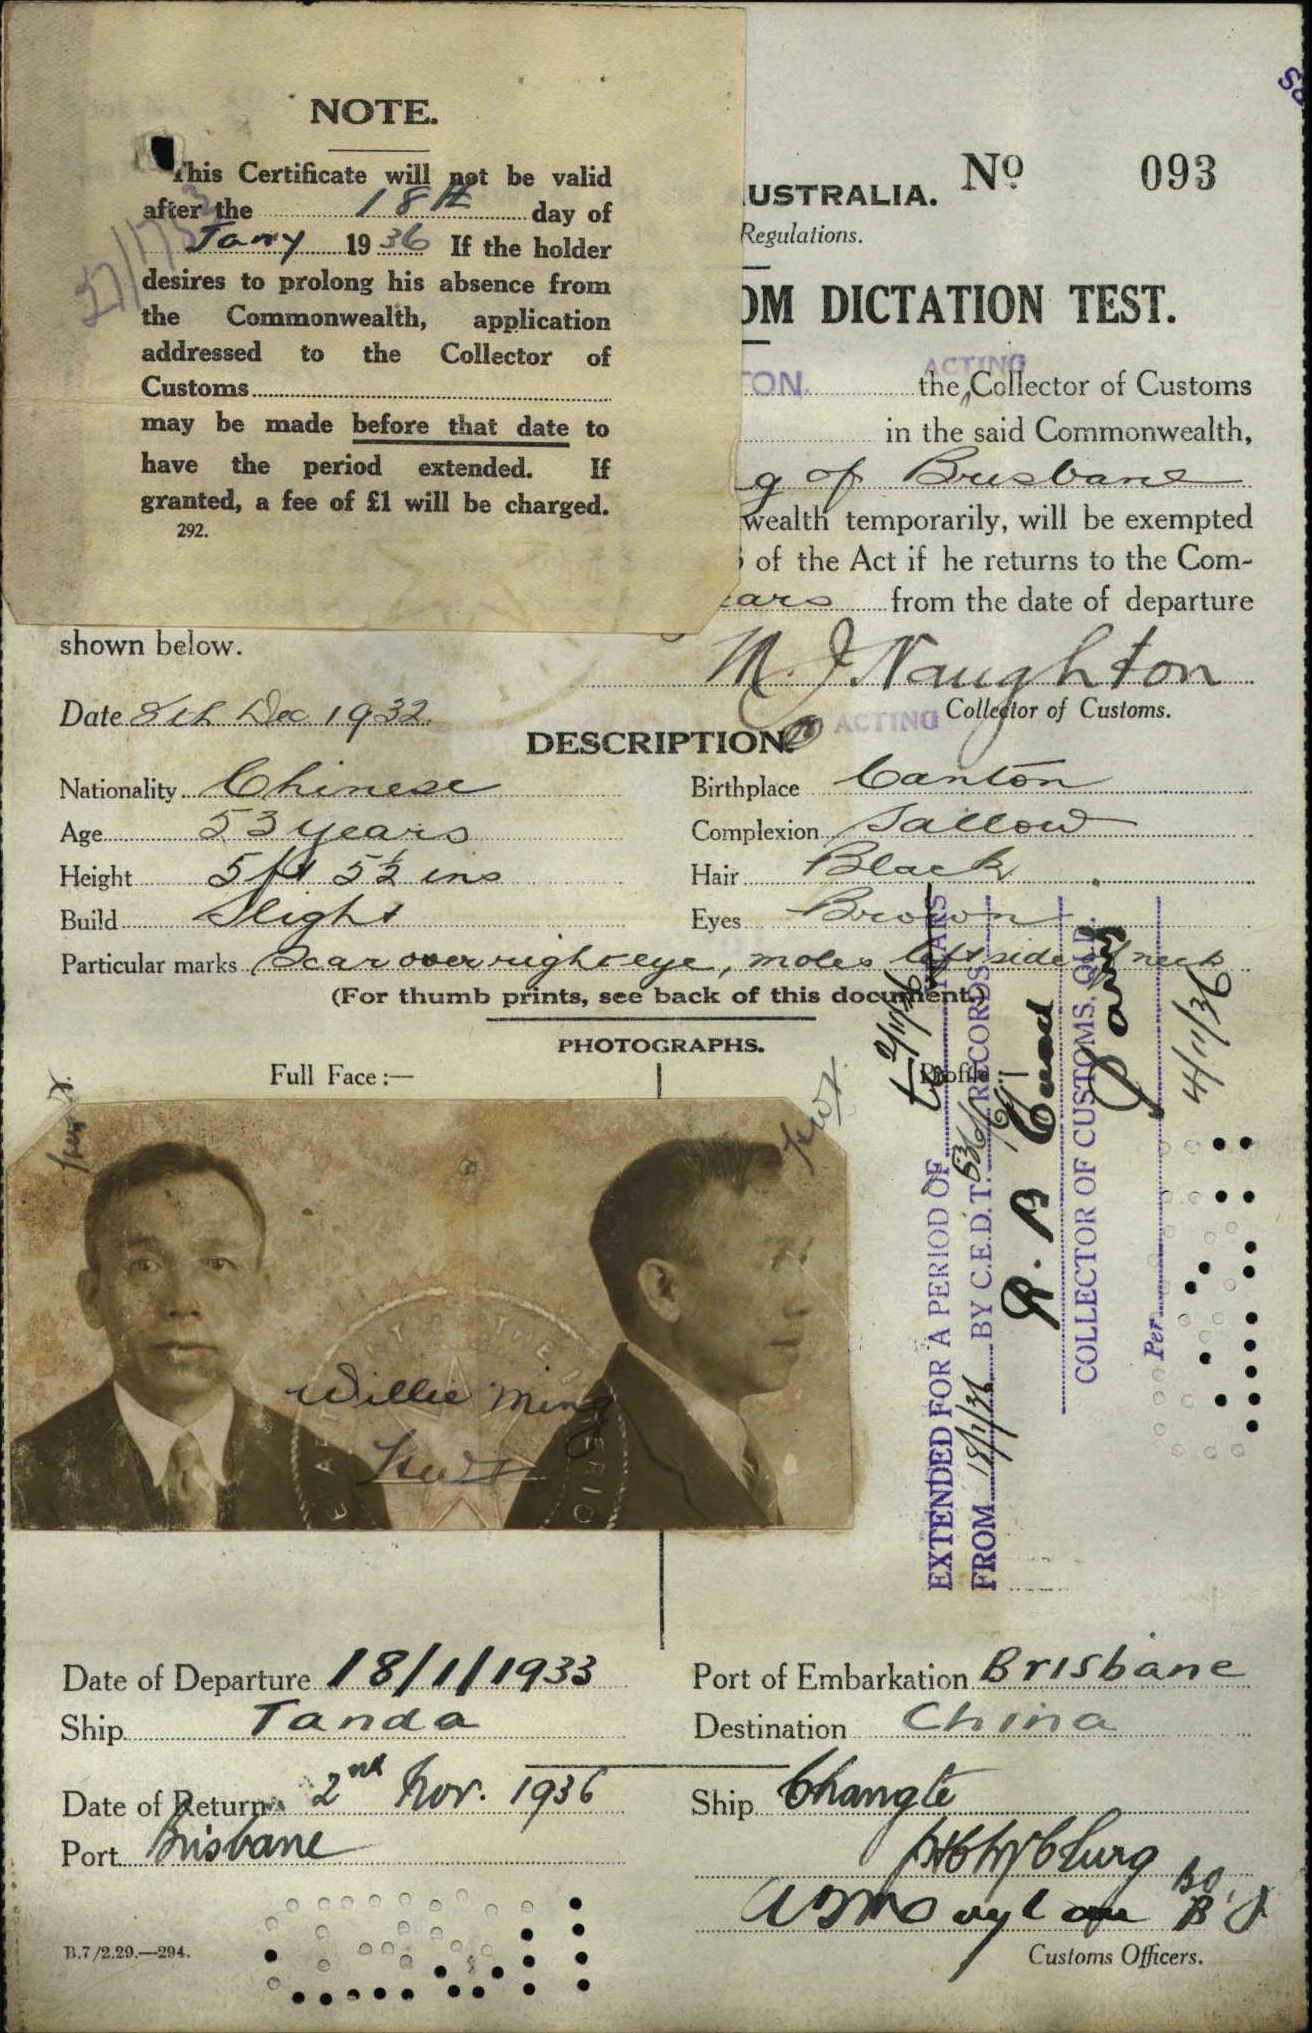 NOTE.
This Certificate will not be valid
after the 18th day of
Jany 1936 If the holder
desires to prolong his absence from
the Commonwealth, application
addressed to the Collector of
Customs
may be made before that date to
have the period extended. If
granted, a fee of £1 will be charged.
292.
Nº 093
USTRALIA.
Regulations.
OM DICTATION TEST.
ACTING
TON. the Collector of Customs
in the said Commonwealth,
g of Brisbane
wealth temporarily, will be exempted
of the Act if he returns to the Com-
ears from the date of departure
shown below.
M. J. Naughton
Date 8th Dec 1932.
ACTING Collector of Customs.
DESCRIPTION.
Nationality Chinese
Birthplace Canton
Age 53 years
Complexion Sallow
Height 5 ft 5½ ins
Hair Black
Build Slight
Eyes Brown
Particular marks Scar over right eye, moles left side of neck
(For thumb prints, see back of this document.)
PHOTOGRAPHS.
Full Face:—
Profile:—
Willie Ming
EXTENDED FOR A PERIOD OF YEARS
to 2/11/36
FROM 18/1/36 BY C.E.D.T. RECORDS
COLLECTOR OF CUSTOMS, QLD.
Per
4/11/36
Date of Departure 18/1/1933
Port of Embarkation Brisbane
Ship Tanda
Destination China
Date of Return 2nd Nov. 1936
Ship Changte
Port Brisbane
Customs Officers.
B.7/2.29.—294.